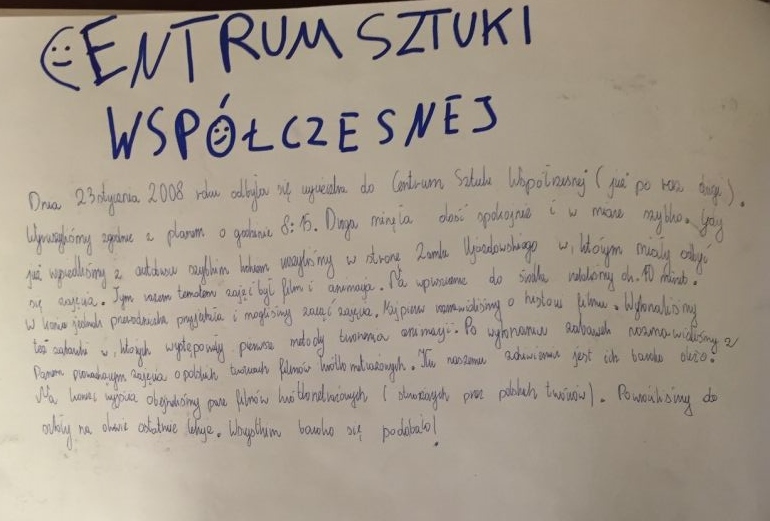 CENTRUM SZTUKI
WSPÓŁCZESNEJ
Dnia 23 stycznia 2008 roku odbyła się wycieczka do Centrum Sztuki Współczesnej (już po raz drugi).
Wyruszyliśmy zgodnie z planem o godzinie 8:15. Droga minęła dość spokojnie i w miarę szybko. Gdy
już wysiedliśmy z autokaru szybkim krokiem ruszyliśmy w stronę Zamku Ujazdowskiego w, którym miały odbyć
się zajęcia. Tym razem tematem zajęć był film i animacja. Na wpuszczenie do środka czekaliśmy ok. 10 minut.
W końcu jednak przewodniczka przyszła i mogliśmy zacząć zajęcia. Najpierw rozmawialiśmy o historii filmu. Wykonaliśmy
też zabawki w, których występowały pierwsze metody tworzenia animacji. Po wykonaniu zabawek rozmawialiśmy z
Panem prowadzącym zajęcia o polskich twórcach filmów krótkometrażowych. Ku naszemu zdziwieniu jest ich bardzo dużo.
Na koniec wyjścia obejrzeliśmy parę filmów krótkometrażowych (stworzonych przez polskich twórców). Powróciliśmy do
szkoły na dwie ostatnie lekcje. Wszystkim bardzo się podobało!